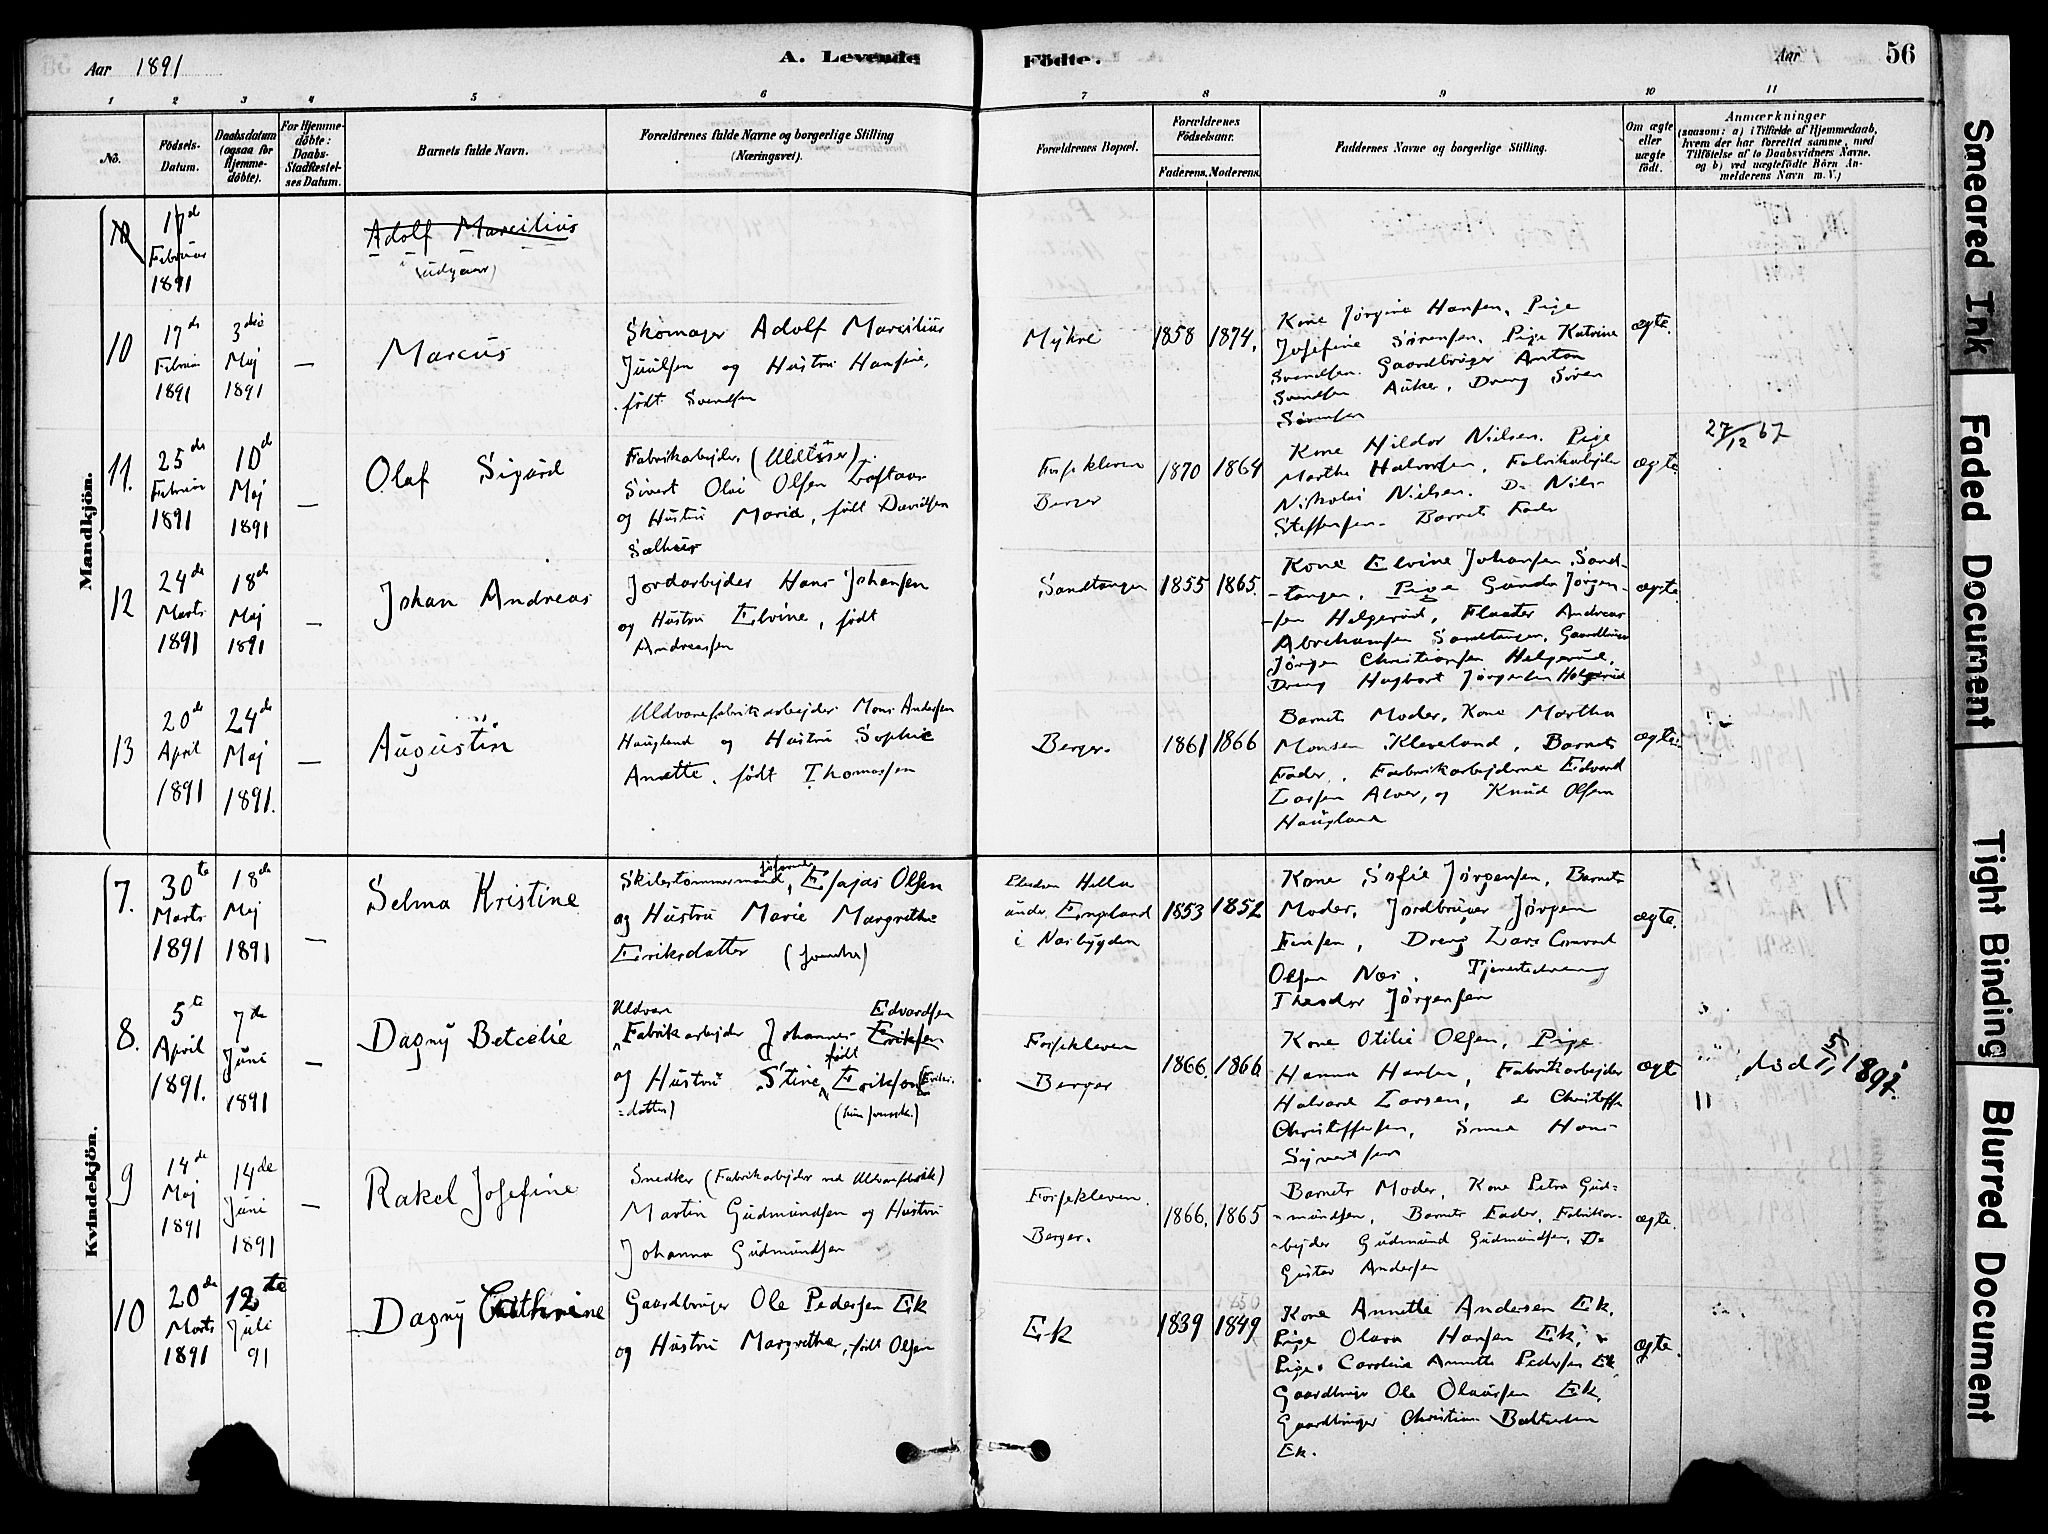 Aar 1891
A. Levende
Födte.
Aar
56
1 2 3 4 5 6 7 8 9 10 11
No.
Födsels-
Datum.
Daabsdatum
(ogsaa for
Hjemme-
döbte).
For Hjemme-
döbte:
Daabs-
Stadfæstel-
ses Datum.
Barnets fulde Navn.
Forældrenes fulde Navne og borgerlige Stilling
(Næringsvei).
Forældrenes Bopæl.
Forældrenes
Födselsaar.
Faderens. Moderens.
Faddernes Navne og borgerlige Stilling.
Om ægte
eller
uægte
födt.
Anmærkninger
(saasom: a) i Tilfælde af Hjemmedaab,
hvem der har forrettet samme, med
Tilföielse af to Daabsvidners Navne,
og b) ved uægtefödte Börn An-
melderens Navn m. V.)
Mandkjön.
10
17de
Februar
1891
Adolf Marcilius
(udgaar)
10
17de
Februar
1891
3die
Maj
1891
—
Marcus
Skomager Adolf Marcilius
Juulsen og Hustru Hansine,
født Svendsen
Mykre
1858 1874.
Kone Jørgine Hansen, Pige
Josefine Sørensen, Pige Katrine
Svendsen. Gaardbruger Anton
Svendsen Auker, Dreng Søren
Sørensen
ægte.
11.
25de
Februar
1891
10de
Maj
1891
—
Olaf Sigurd
Fabrikarbejder
Sivert Olai Olsen
og Hustru Maria, født Davidsen
Sælhus
Fossekleven
Berger
1870 1864
Kone Hildor Nielsen. Pige
Marthe Halvorsen, Fabrikarbejder
Nikolai Nielsen. Do Nils
Steffensen. Barnets Fader
ægte.
27/12 67
12
24de
Marts
1891
18de
Maj
1891
—
Johan Andreas
Jordarbejder Hans Johansen
og Hustru Elvine, født
Andreassen
Sandtangen
1855 1865.
Kone Elvine Johansen Sand-
-tangen, Pige Gunda Jørgen-
-sen Helgerud, Flaader Andreas
Abrahamsen Sandtangen, Gaardbruger
Jørgen Christiansen Helgerud,
Dreng Hagbart Jørgensen Helgerud
ægte.
13
20de
April
1891
24de
Maj
1891.
—
Augustin
Uldvarefabrikarbejder Mons Andersen
Haugland og Hustru Sophie
Anette, født Thomassen
Berger.
1861 1866
Barnets Moder, Kone Martha
Monsen Kleveland, Barnets
Fader, Fabrikarbejderne Edvard
Larsen Alver, og Knud Olsen
Haugland
ægte
Kvindekjön.
7.
30te
Marts
1891
18de
Maj
1891
—
Selma Kristine
Skibstømmermand, Esajas Olsen
og Hustru Marie Margrethe
Eriksdatter (svenske)
Hella
under Engeland
i Nesbygden
1853 1852
Kone Sofie Jørgensen, Barnets
Moder, Jordbruger Jørgen
Ensen, Dreng Lars Conrad
Olsen Nes. Tjenestedreng
Theodor Jørgensen
ægte.
8.
5te
April
1891.
7de
Juni
1891
—
Dagny Betcelie
Uldvare Edvardsen
Fabrikarbejder Johannes Eriksen
og Hustru Stine født Erikson (Eriks-
=datter) (hun svensk.)
Fossekleven
Berger
1866. 1866
Kone Otilie Olsen, Pige
Hanna Hansen, Fabrikarbejder
Halvard Larsen, do Christoffer
Christoffersen, Smed Hans
Syvertsen
ægte
død 5/11 1897.
9
14de
Maj
1891
14de
Juni
1891
—
Rakel Josefine
Snedker (Fabrikarbejder ved Uldvarefabrik)
Martin Gudmundsen og Hustru
Johanna Gudmundsen
Fossekleven.
Berger.
1866. 1865
Barnets Moder, Kone Petra Gud=
=mundsen, Barnets Fader, Fabrikar-
-bejder Gudmund Gudmundsen, Do
Gustav Andersen
ægte.
10
20de
Marts
1891
12te
Juli
91
Dagny Cathrine
Gaardbruger Ole Pedersen Ek
og Hustru Margrethe, født Olsen
Ek
1839 1849
1850
Kone Annette Andersen Ek,
Pige Olava Hansen Ek,
Pige Caroline Annette Pedersen Ek,
Gaardbruger Ole Olaussen Ek,
Gaardbruger Christian Baltsersen
Ek.
ægte.
Smeared Ink
Faded Document
Tight Binding
Blurred Document